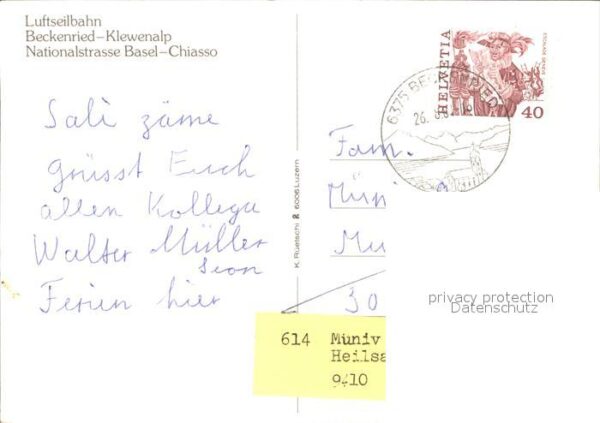 Luftseilbahn
Beckenried–Klewenalp
Nationalstrasse Basel–Chiasso
Sali zäme
Grüsst Euch
allen Kollega
Walter Müller
Seon
Ferien hier
K. Ruetschi 6006 Luzern
HELVETIA
40
6375 BECKENRIED
26.
Fam.
Müni
Mu
30
privacy protection
Datenschutz
614 Muniv
Heilsa
9/10